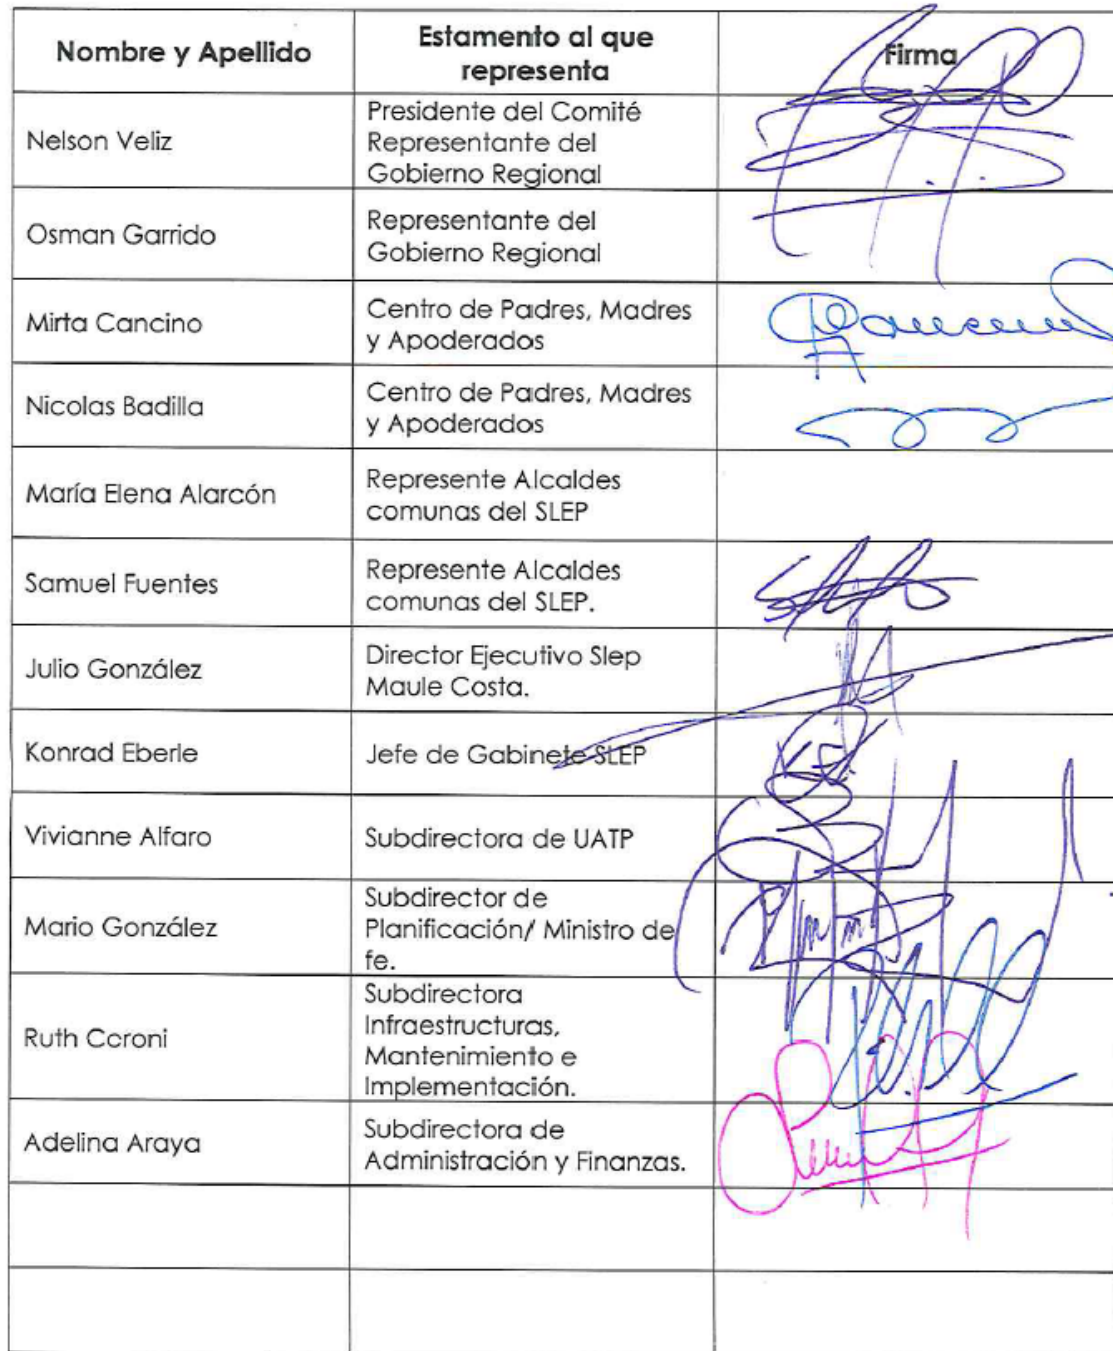 Nombre y Apellido
Estamento al que
representa
Firma
Nelson Veliz
Presidente del Comité
Representante del
Gobierno Regional
Osman Garrido
Representante del
Gobierno Regional
Mirta Cancino
Centro de Padres, Madres
y Apoderados
Nicolas Badilla
Centro de Padres, Madres
y Apoderados
María Elena Alarcón
Represente Alcaldes
comunas del SLEP
Samuel Fuentes
Represente Alcaldes
comunas del SLEP.
Julio González
Director Ejecutivo Slep
Maule Costa.
Konrad Eberle
Jefe de Gabinete SLEP
Vivianne Alfaro
Subdirectora de UATP
Mario González
Subdirector de
Planificación/ Ministro de
fe.
Ruth Ceroni
Subdirectora
Infraestructuras,
Mantenimiento e
Implementación.
Adelina Araya
Subdirectora de
Administración y Finanzas.